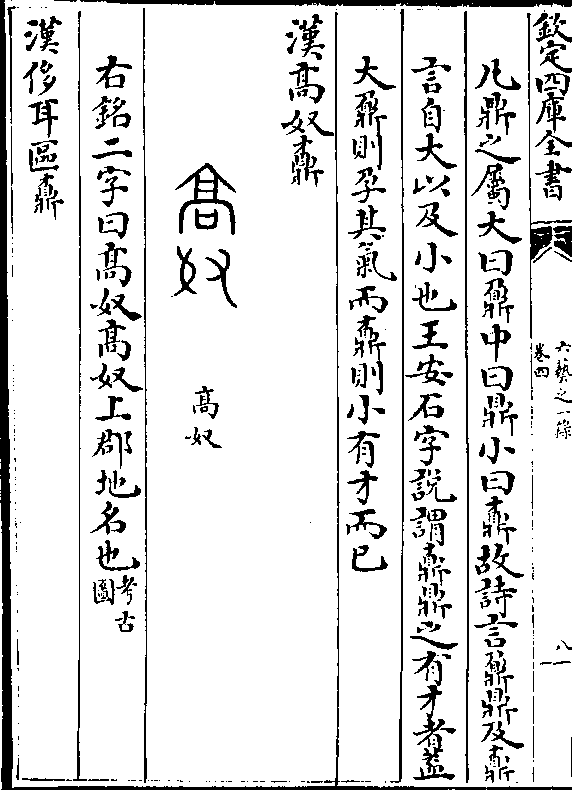 欽定四庫全書
六藝之一錄
卷四
八
凡鼎之屬大曰鼐中曰鼎小曰鼒故詩言鼐鼎及鼒
言自大以及小也王安石字說謂鼒鼎之有才者蓋
大鼐則孕其氣而鼒則小有才而已
漢高奴鼒
高奴
高奴
右銘二字曰高奴高奴上郡地名也考古圖
漢侈耳區鼒